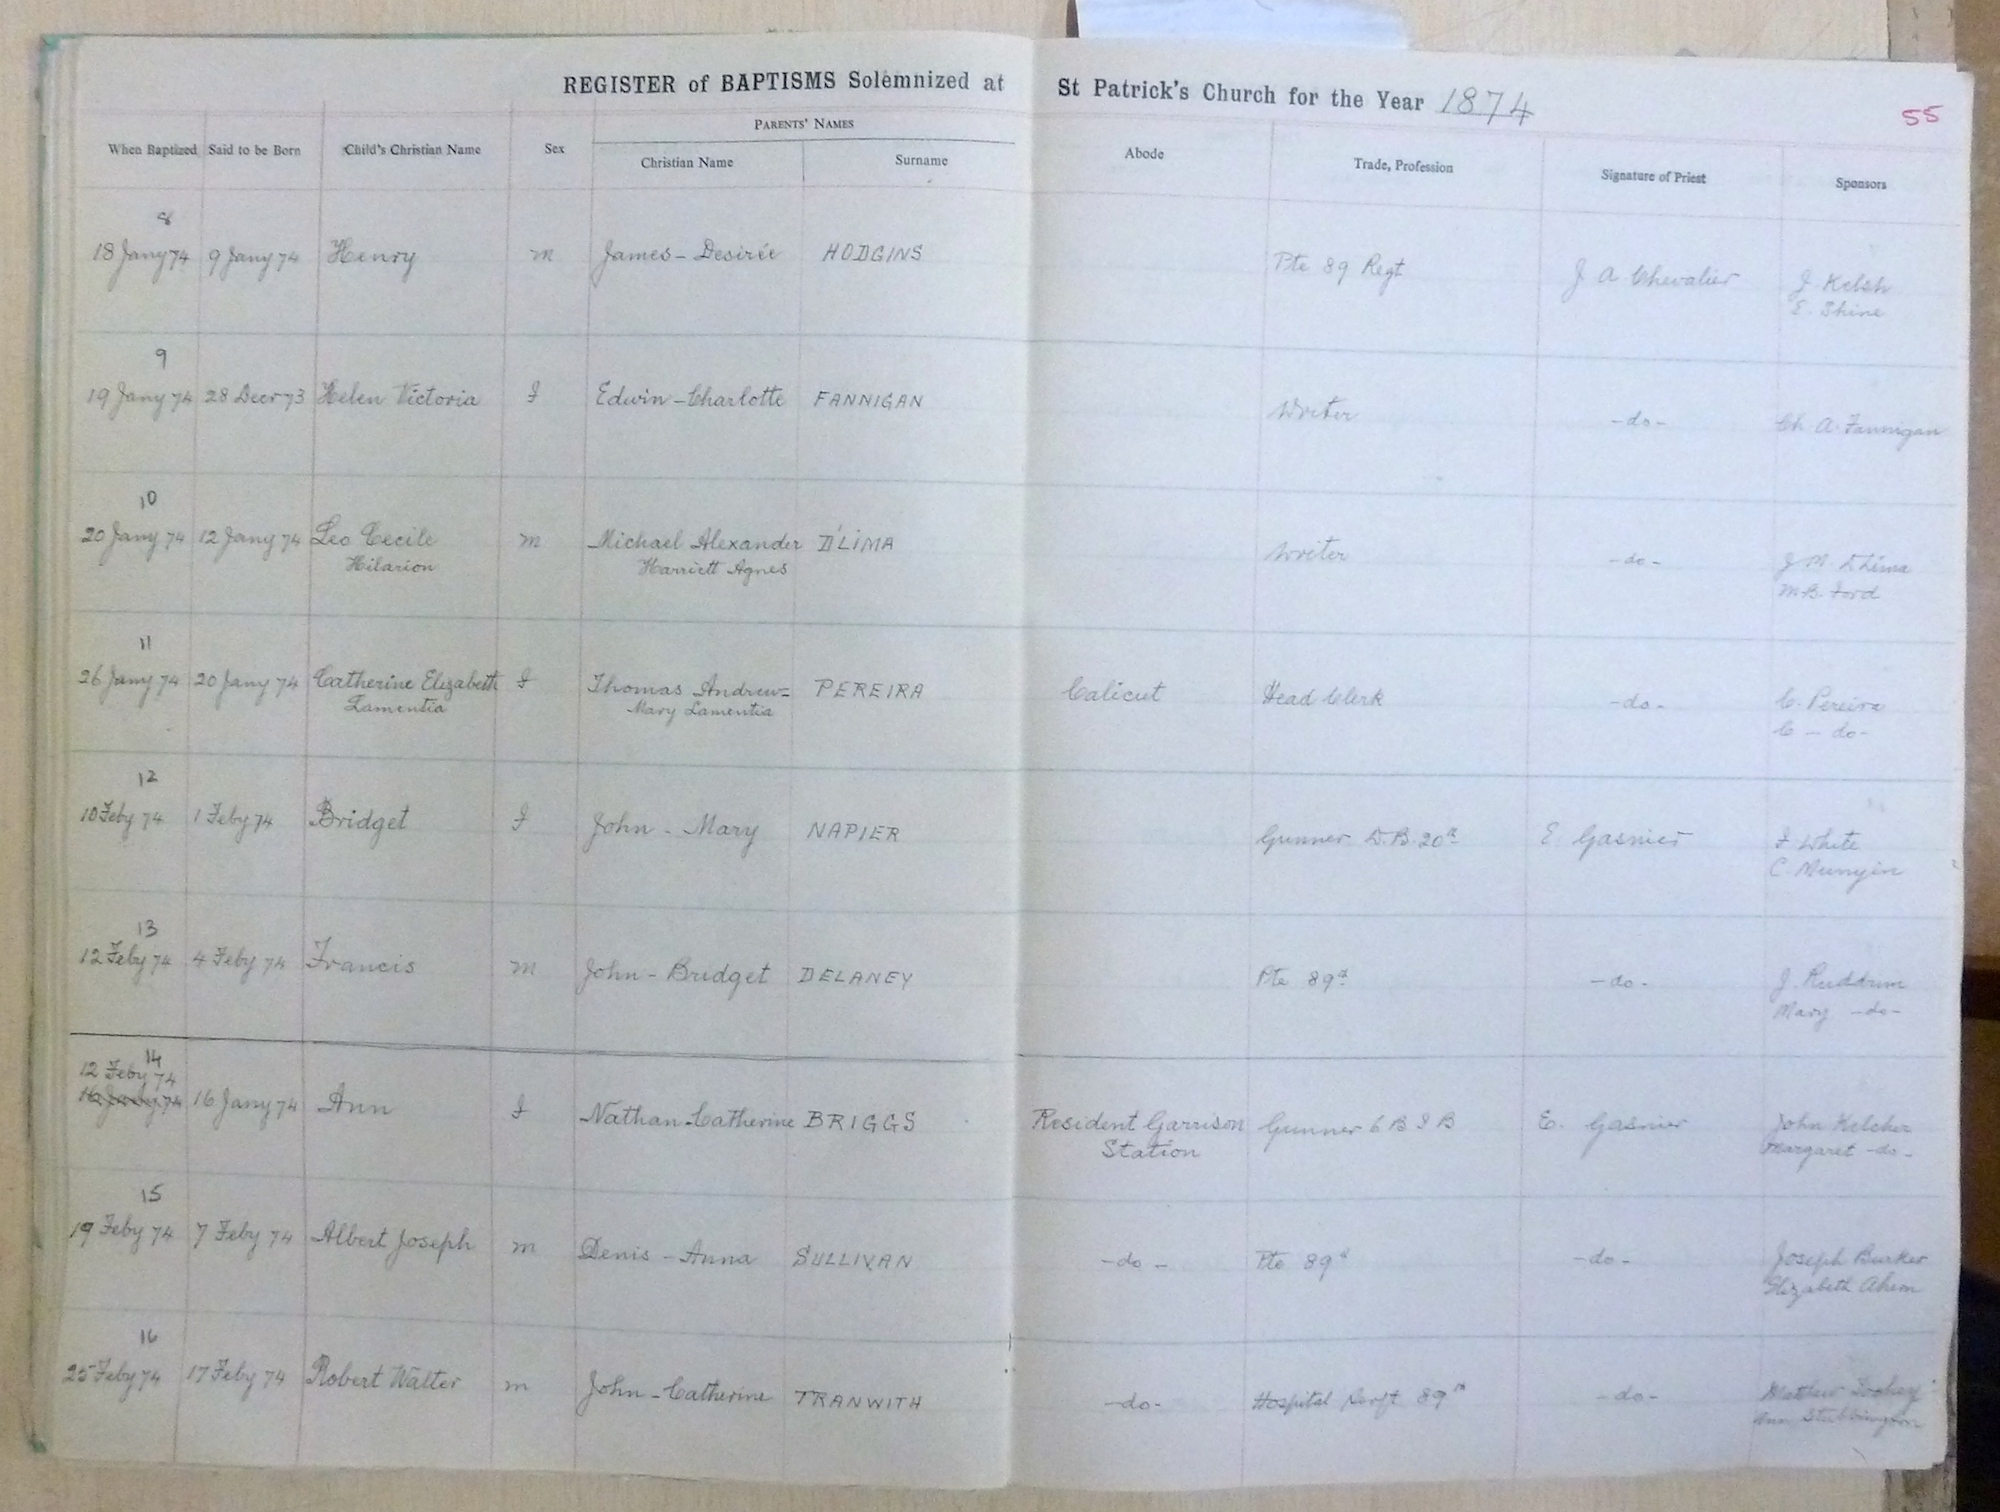 REGISTER of BAPTISMS Solemnized at St Patrick's Church for the Year 1874
55
When Baptized Said to be Born Child's Christian Name Sex PARENTS' NAMES Christian Name Surname Abode Trade, Profession Signature of Priest Sponsors
8
18 Jany 74 9 Jany 74 Henry m James - Desirée HODGINS Pte 89 Regt J A Chevalier J Kelsh
E. Shine
9
19 Jany 74 28 Decr 73 Helen Victoria f Edwin - Charlotte FANNIGAN Writer - do - Ch. A. Fannigan
10
20 Jany 74 12 Jany 74 Leo Cecile m Michael Alexander D'LIMA Writer - do - J M. D'Lima
Hilarion Harriett Agnes M.B. Ford
11
26 Jany 74 20 Jany 74 Catherine Elizabeth f Thomas Andrew= PEREIRA Calicut Head Clerk - do - C. Pereira
Lamentia Mary Lamentia C - do -
12
10 Feby 74 1 Feby 74 Bridget f John - Mary NAPIER Gunner D.B. 20th E Gasnier J White
C.
13
12 Feby 74 4 Feby 74 Francis m John - Bridget DELANEY Pte 89th - do - J. Ruddrum
Mary - do -
14
12 Feby 74
16 Jany 74 16 Jany 74 Ann f Nathan - Catherine BRIGGS Resident Garrison Gunner 6 B J B E. Gasnier John Kelcher
Station Margaret - do -
15
19 Feby 74 7 Feby 74 Albert Joseph m Denis - Anna SULLIVAN - do - Pte 89th - do - Joseph Burker
Elizabeth Ahern
16
25 Feby 74 17 Feby 74 Robert Walter m John - Catherine TRANWITH - do - Hospital 89th - do - Matthew
Ann Stubbington